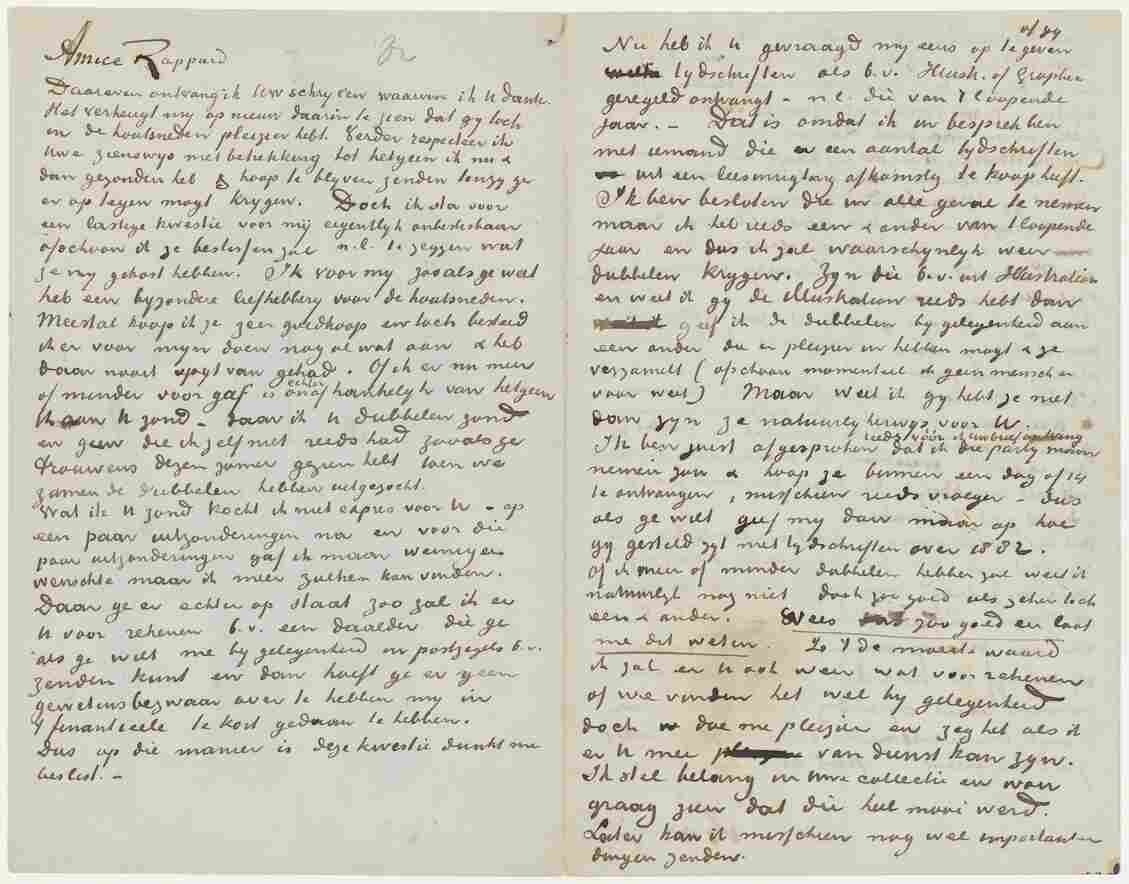 Amice Rappard
Daareven ontvang ik Uw schrijven waarvoor ik U dank.
Het verheugt mij op nieuw daarin te zien dat gij toch
in de houtsneden pleizier hebt. Verder respecteer ik
Uwe zienswijs met betrekking tot hetgeen ik nu &
dan gezonden heb & hoop te blijven zenden tenzij ge
er op tegen mogt krijgen. Doch ik sta voor
een lastige kwestie voor mij eigentlijk onbeslisbaar
ofschoon ik ze beslissen zal n.l. te zeggen wat
ze mij gekost hebben. Ik voor mij zooals ge weet
heb een byzondere liefhebbery voor de houtsneden.
Meestal koop ik ze zeer goedkoop en toch besteed
ik er voor mijn doen nog al wat aan & heb
daar nooit spijt van gehad. Of ik er nu meer
of minder voor gaf is echter onafhankelyk van hetgeen
ik aan U zond – daar ik U dubbelen zond
en geen die ik zelf niet reeds had zooals ge
trouwens dezen zomer gezien hebt toen we
zamen de dubbelen hebben uitgezocht.
Wat ik U zond kocht ik niet expres voor U – op
een paar uitzonderingen na en voor die
paar uitzonderingen gaf ik maar weinig en
wenschte maar ik meer zulken kon vinden.
Daar ge er echter op staat zoo zal ik er
U voor rekenen b.v. een daalder die ge
als ge wilt me by gelegenheid in postzegels b.v.
zenden kunt en dan hoeft ge er geen
gewetensbezwaar over te hebben my in
't financieele te kort gedaan te hebben.
Dus op die manier is deze kwestie dunkt me
beslist. –
Nu heb ik U gevraagd mij eens op te geven
tydschriften als b.v. Illustr. of Graphic
geregeld ontvangt – n.l. die van 't loopende
jaar. – Dat is omdat ik in bespreking ben
met iemand die een aantal tydschriften
uit een leesinrigting afkomstig te koop heeft.
Ik ben besloten die in alle geval te nemen
maar ik heb reeds een & ander van 't loopende
jaar en dus ik zal waarschynlyk weer
dubbelen krygen. Zyn die b.v. uit Illustration
en weet ik gy de Illustration reeds hebt dan
geef ik de dubbelen by gelegenheid aan
een ander die er pleizier in hebben mogt & ze
verzamelt (ofschoon momenteel ik geen mensch er
voor weet) Maar weet ik gy hebt ze niet
dan zyn ze natuurlykerwys voor U.
reeds vóór ik uw brief ontvang
Ik ben juist afgesproken dat ik die party maar
nemen zou & hoop ze binnen een dag of 14
te ontvangen, misschien reeds vroeger – dus
als ge wilt geef my dan maar op hoe
gy gesteld zyt met tydschriften over 1882.
Of ik meer of minder dubbelen hebben zal weet ik
natuurlyk nog niet doch zoo goed als zeker toch
een & ander. Wees zoo goed en laat
me dit weten. Is 't de moeite waard
ik zal er U ook weer wat voor rekenen
of we vinden het wel by gelegenheid
doch doe me pleizier en zeg het als ik
er U mee van dienst kan zyn.
Ik stel belang in Uwe collectie en wou
graag zien dat die heel mooi werd.
Later kan ik misschien nog wel importanter
dingen zenden.